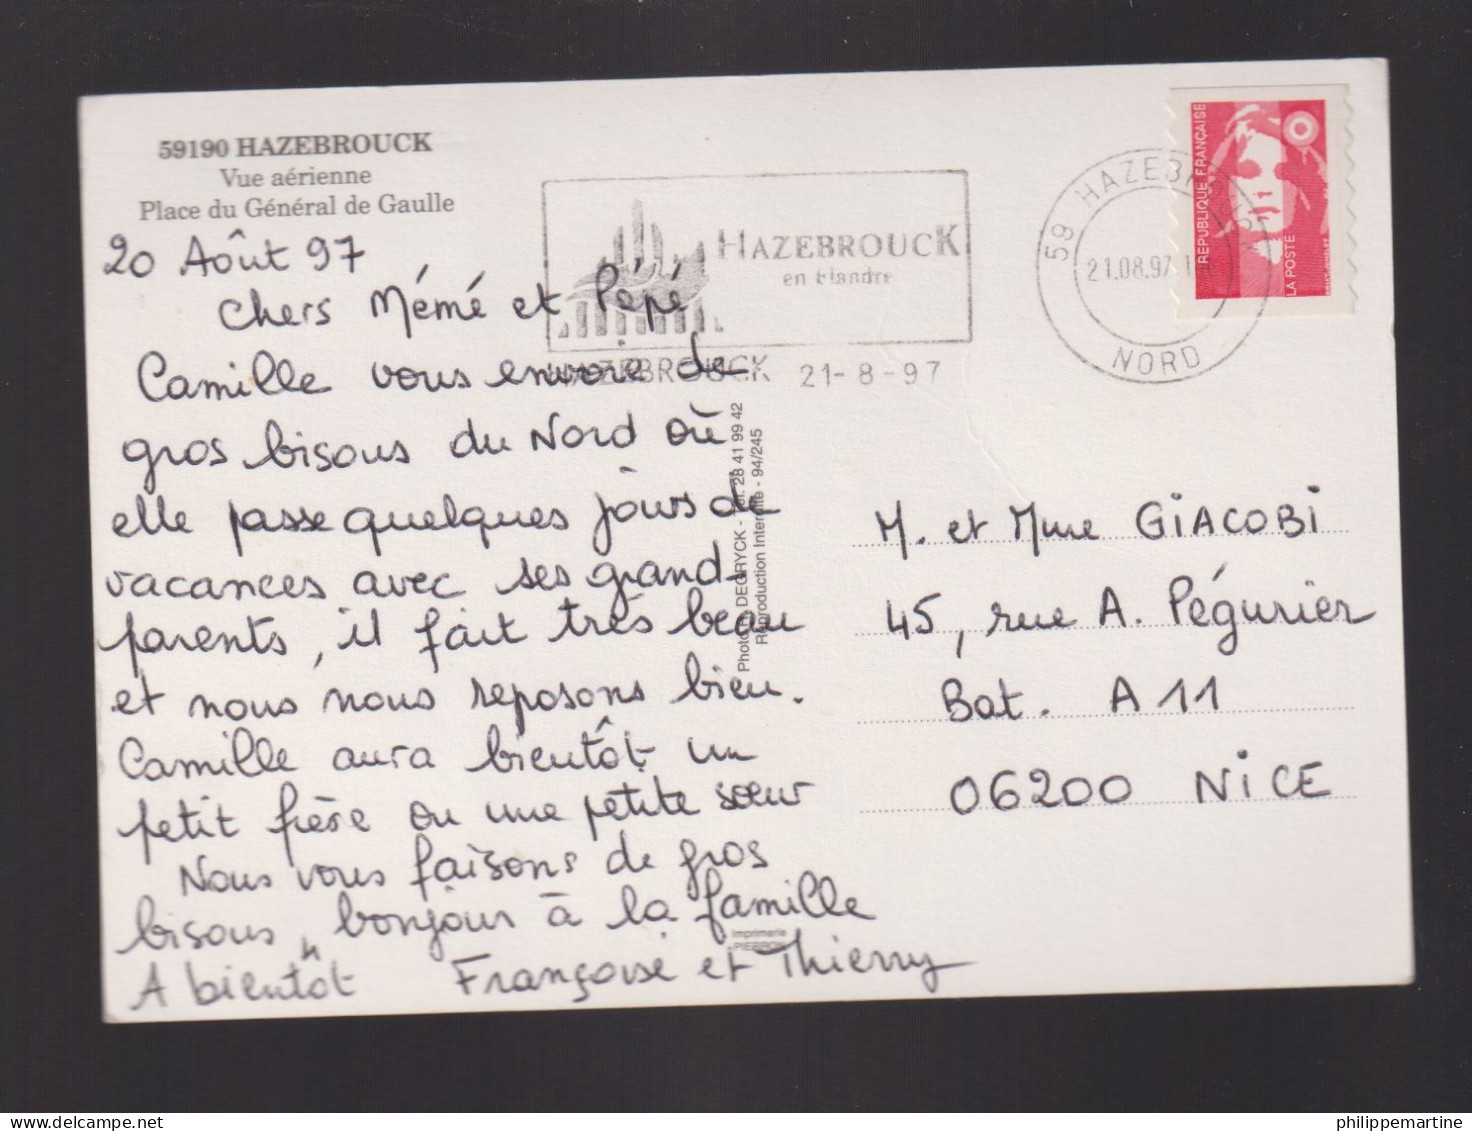 59190 HAZEBROUCK
Vue aérienne
Place du Général de Gaulle
20 Août 97
Chers Mémé et Pépé
Camille vous envoie de
gros bisous du Nord où
elle passe quelques jours de
vacances avec ses grand-
parents, il fait très beau
et nous nous reposons bien.
Camille aura bientôt un
petit frère ou une petite sœur
Nous vous faisons de gros
bisous, bonjour à la famille
A bientôt Françoise et Thierry
HAZEBROUCK
en Flandre
HAZEBROUCK 21-8-97
59 HAZEBROUCK
21.08.97
NORD
REPUBLIQUE FRANÇAISE
LA POSTE
Photo DEGRYCK - Tél. 28 41 99 42
Reproduction Interdite - 94/245
Imprimerie
PIERRON
M. et Mme GIACOBI
45, rue A. Pégurier
Bat. A 11
06200 NICE
philippemartine